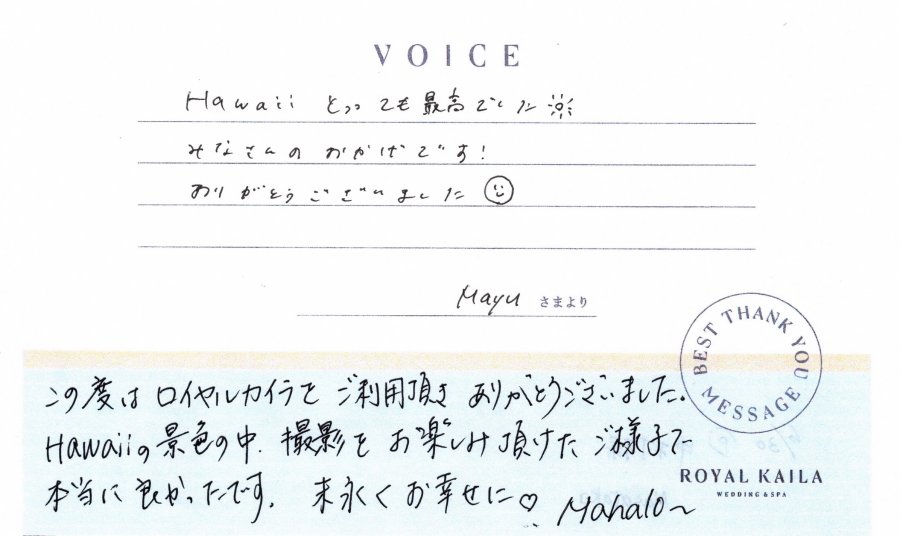 VOICE
Hawaii とっても最高でした
みなさんのおかげです!
ありがとうございました
Mayu さまより
BEST THANK YOU MESSAGE
この度はロイヤルカイラをご利用頂き ありがとうございました.
Hawaiiの景色の中.撮影をお楽しみ頂けたご様子で
本当に良かったです. 末永くお幸せに♡ Mahalo~
ROYAL KAILA
WEDDING & SPA